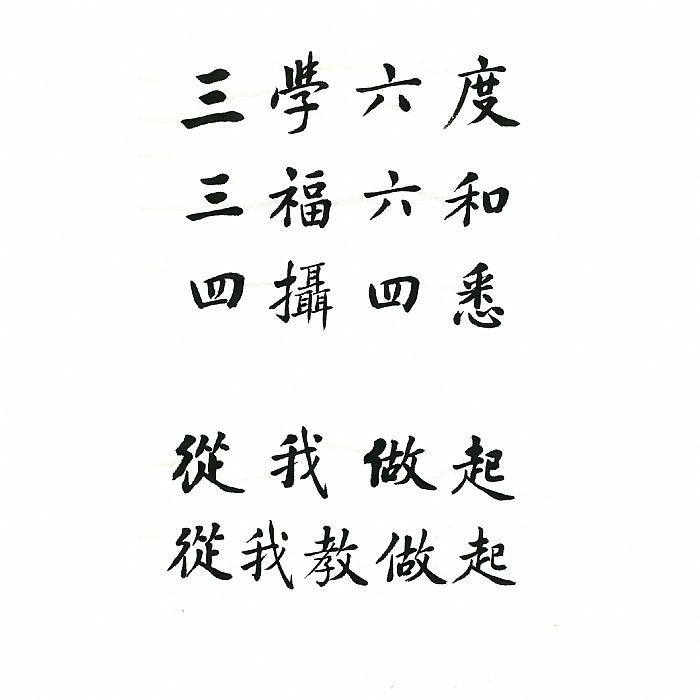 三學六度
三福六和
四攝四悉
從我做起
從我教做起